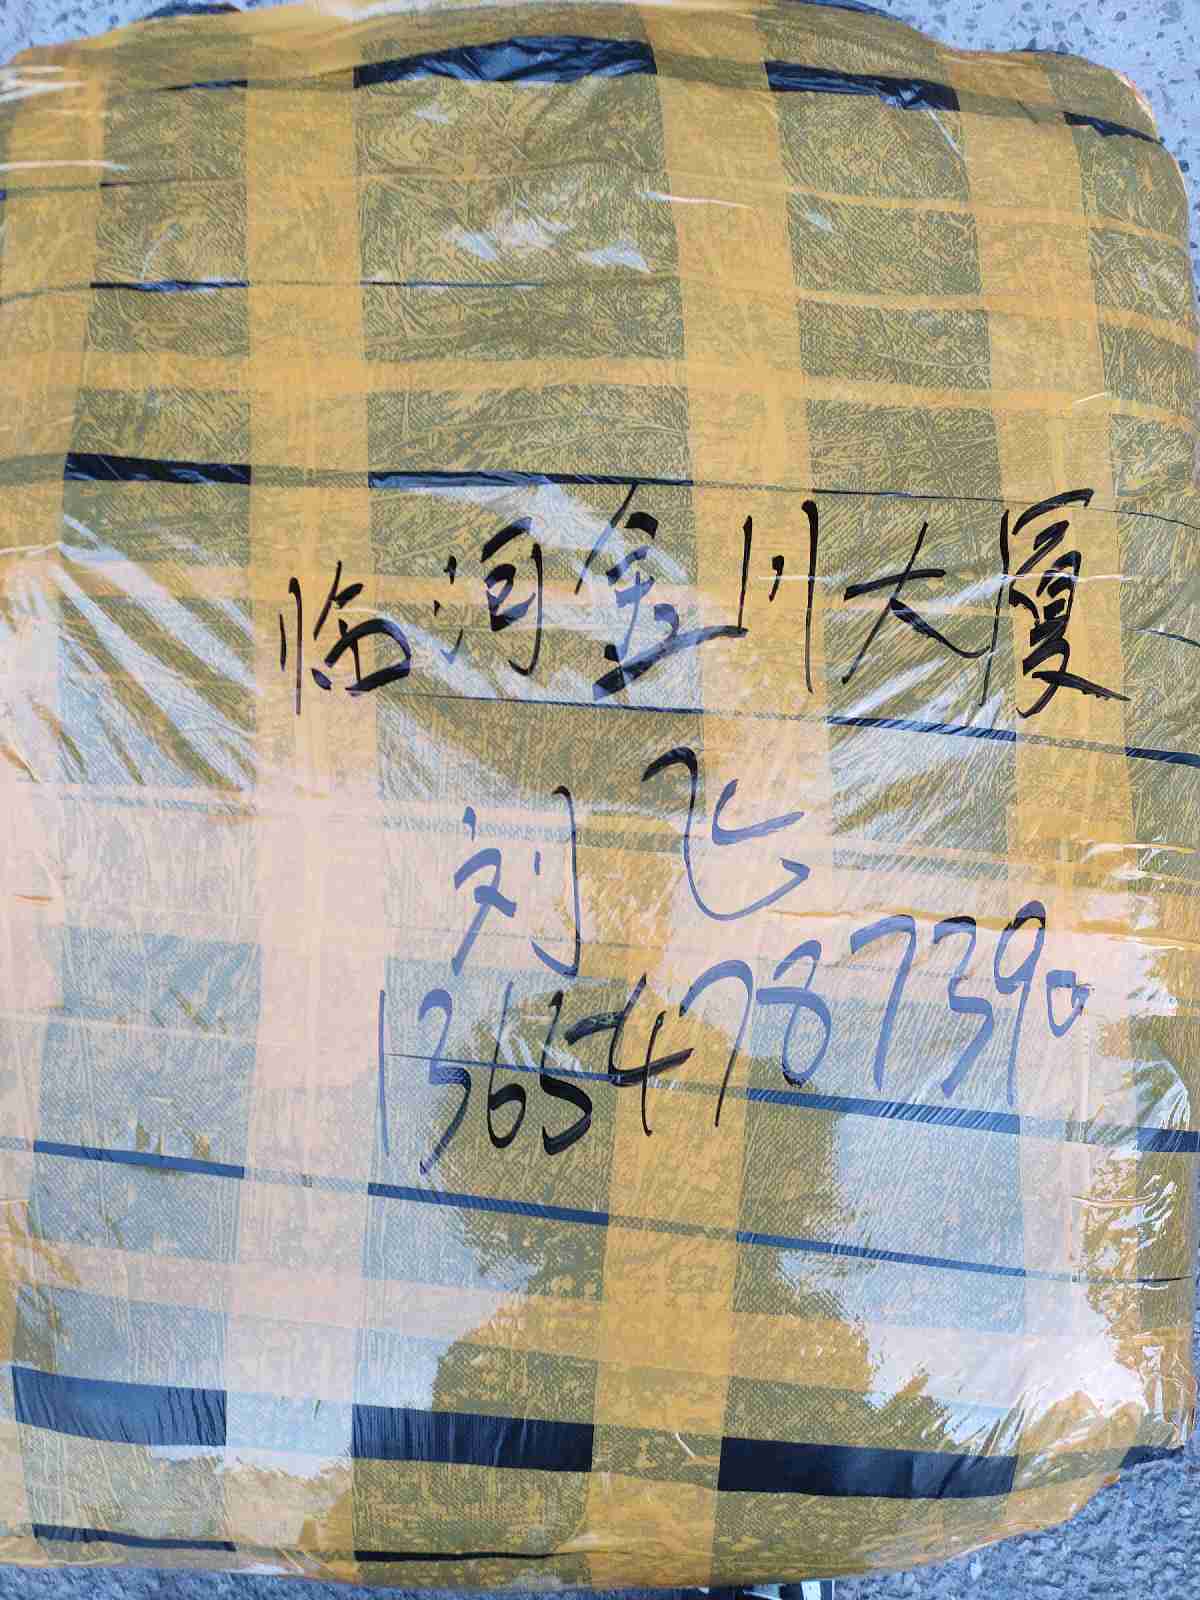 临河金川大厦
刘飞
13654787390